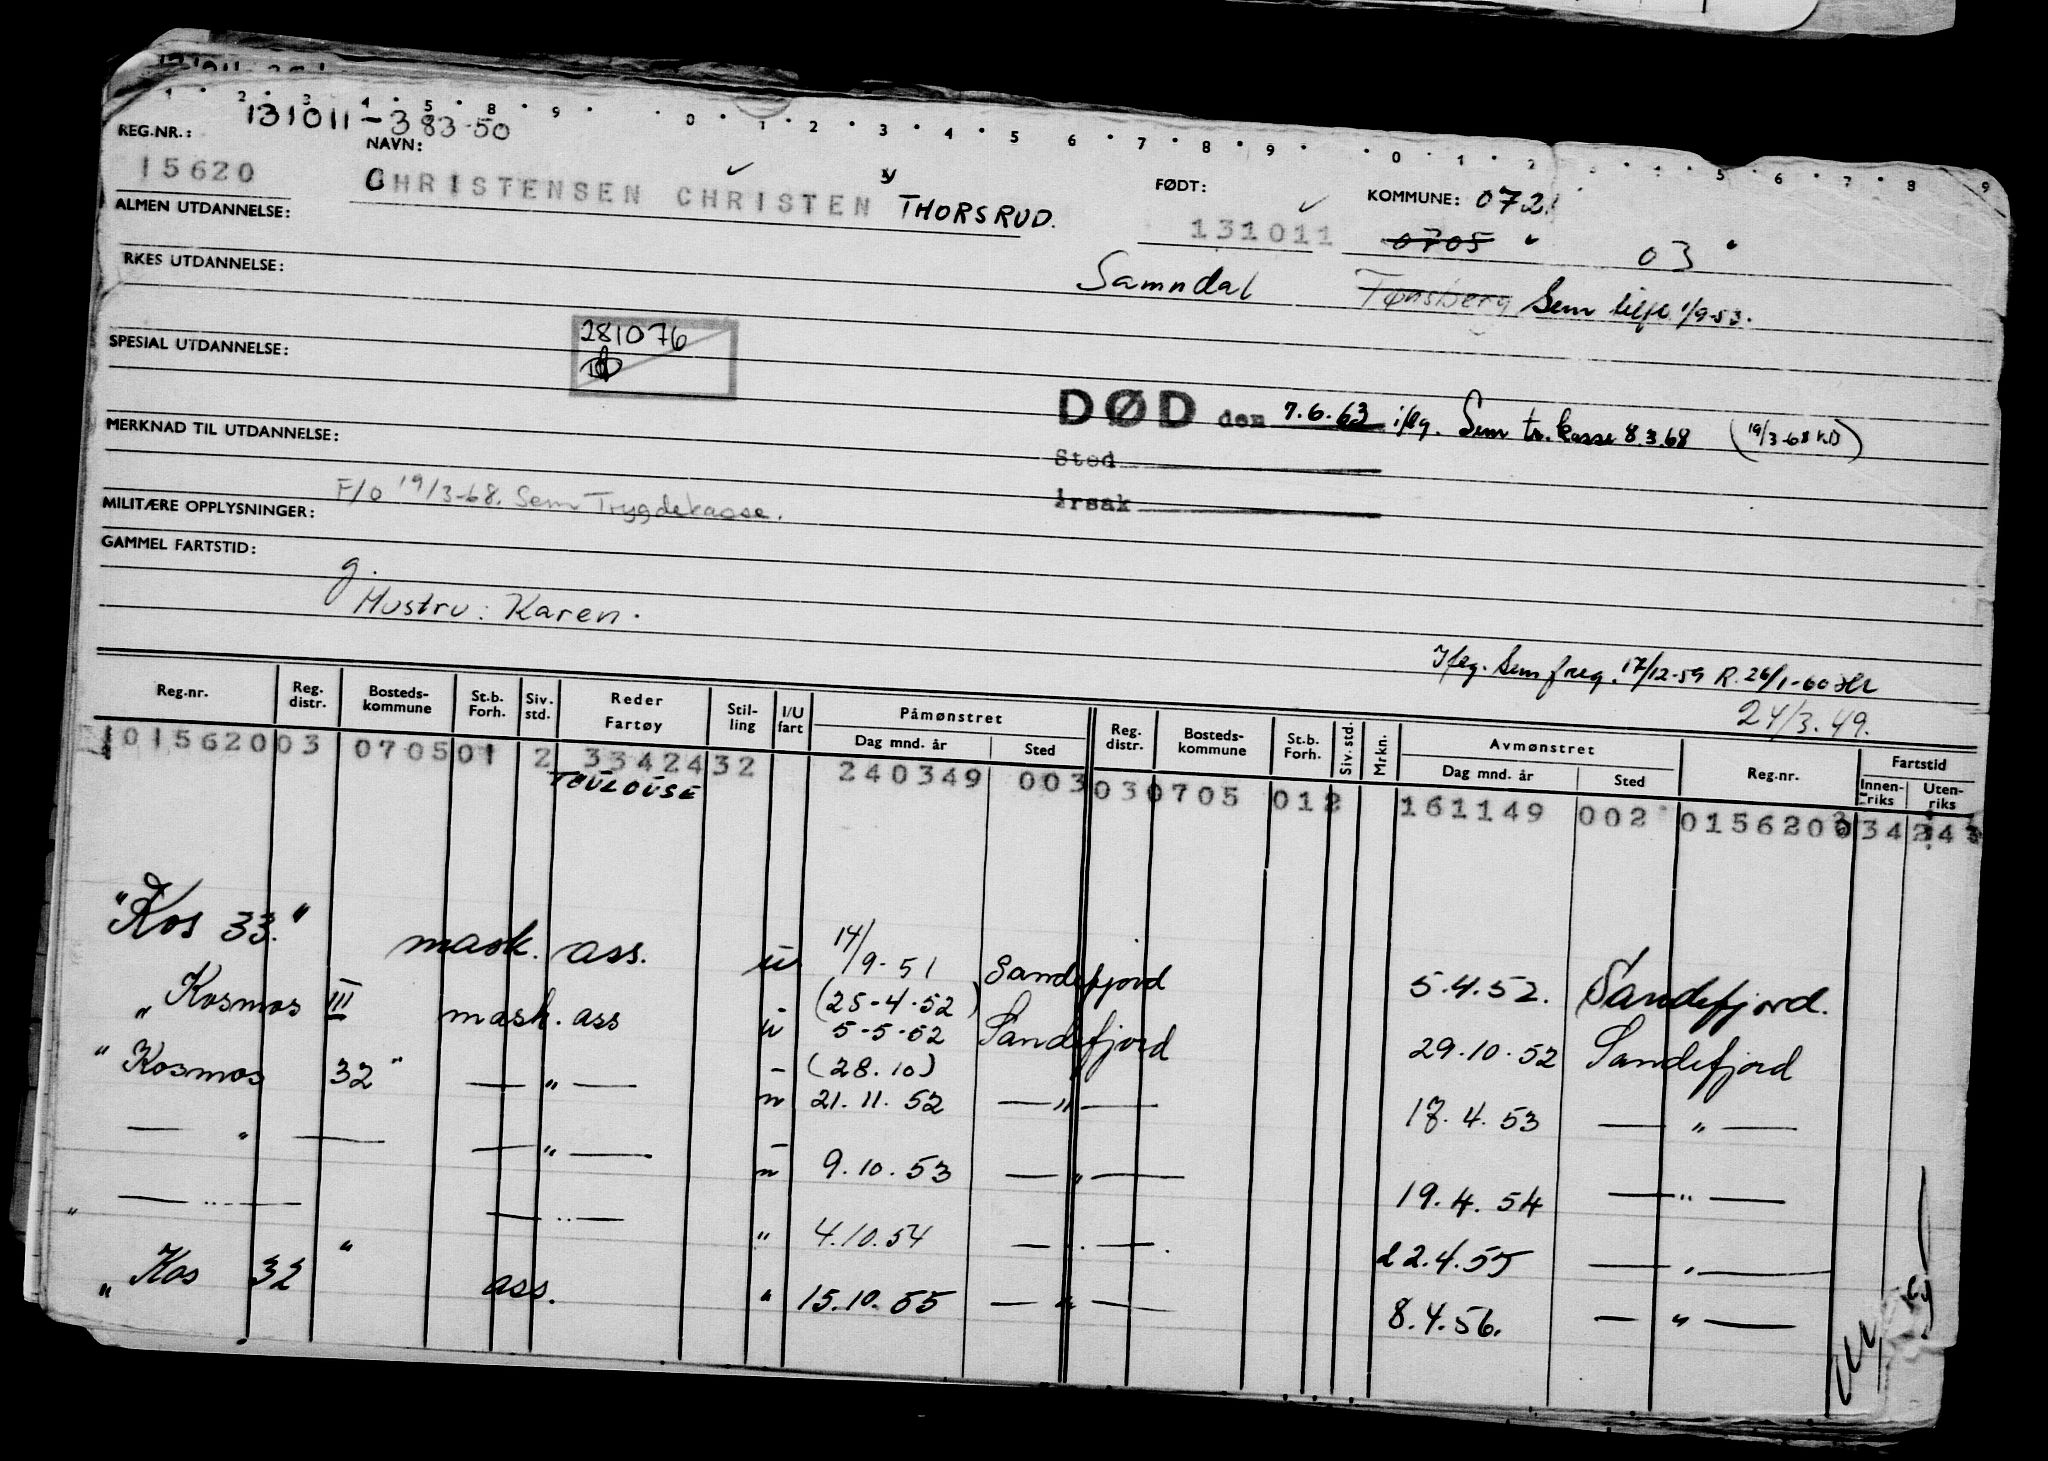 131011-383-50
REG.NR.: NAVN: FØDT: KOMMUNE: 072
15620 CHRISTENSEN CHRISTEN THORSRUD. 131011 0705 " 03 "
ALMEN UTDANNELSE:
Samndal Tønsberg Sem 1/9-53.
RKES UTDANNELSE:
281076
SPESIAL UTDANNELSE:
DØD den 7.6.63 iflg. Sem tr.kasse 8.3.68 (19/3-68 KD)
MERKNAD TIL UTDANNELSE:
Sted
F/O 19/3-68. Sem Trygdekasse.
MILITÆRE OPPLYSNINGER:
årsak
GAMMEL FARTSTID:
g.
Hustru: Karen.
Iflg. Sem freg. 17/12-59 R. 26/1-60
24/3.49.
Reg.nr. Reg. distr. Bosteds-kommune St.b. Forh. Siv. std. Reder Fartøy Stil-ling I/U fart Påmønstret Dag mnd. år Sted Reg. distr. Bosteds-kommune St.b. Forh. Siv. std. Mrkn. Avmønstret Dag mnd. år Sted Reg.nr. Fartstid Innen-riks Uten-riks
01562003 070501 2 3342432 240349 003 030705 012 161149 002 0156200 34243
TOULOUSE
"Kos 33." mask. ass. u 14/9-51 Sandefjord 5.4.52. Sandefjord.
(25-4-52)
"Kosmos III mask. ass u 5-5-52 Sandefjord 29.10.52 Sandefjord
(28.10)
"Kosmos 32" — " — u 21.11.52 — " — 18.4.53 — " —
— " — — " — u 9.10.53 — " — 19.4.54 — " —
" — " — " — " — " 4.10.54 — " — 22.4.55 — " —
"Kos 32 ass. " 15.10.55 — " — 8.4.56. — " —